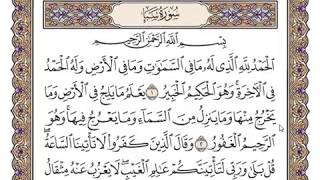 سُورَةُ سَبَإٍ
بِسْمِ اللَّهِ الرَّحْمَٰنِ الرَّحِيمِ
الْحَمْدُ لِلَّهِ الَّذِي لَهُ مَا فِي السَّمَاوَاتِ وَمَا فِي الْأَرْضِ وَلَهُ الْحَمْدُ
فِي الْآخِرَةِ وَهُوَ الْحَكِيمُ الْخَبِيرُ ١ يَعْلَمُ مَا يَلِجُ فِي الْأَرْضِ وَمَا
يَخْرُجُ مِنْهَا وَمَا يَنزِلُ مِنَ السَّمَاءِ وَمَا يَعْرُجُ فِيهَا وَهُوَ
الرَّحِيمُ الْغَفُورُ ٢ وَقَالَ الَّذِينَ كَفَرُوا لَا تَأْتِينَا السَّاعَةُ
قُلْ بَلَىٰ وَرَبِّي لَتَأْتِيَنَّكُمْ عَالِمِ الْغَيْبِ لَا يَعْزُبُ عَنْهُ مِثْقَالُ